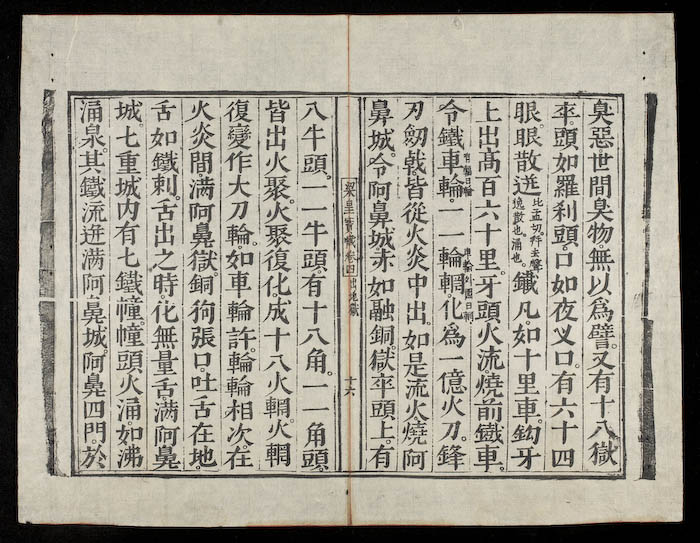 臭惡。世間臭物。無以爲譬。又有十八獄
卒。頭如羅刹頭。口如夜叉口。有六十四
眼。眼散迸比孟切拜去聲。散也。涌也。鐵凡。如十里車。鈎牙
上出。高百六十里。牙頭火流。燒前鐵車。
令鐵車輪有輻曰輪。一一輪輞車輪外圍曰輞。化爲一億火刀。鋒
刃劒戟。皆從火炎中出。如是流火。燒阿
鼻城。令阿鼻城。赤如融銅。獄卒頭上。有
梁皇寶懺卷四 地獄 十六
八牛頭。一一牛頭。有十八角。一一角頭。
皆出火聚。火聚復化。成十八火輞。火輞
復變。作大刀輪。如車輪許。輪輪相次。在
火炎間。滿阿鼻獄。銅狗張口。吐舌在地。
舌如鐵刺。舌出之時。化無量舌。滿阿鼻
城。七重城內。有七鐵幢。幢頭火涌。如沸
涌泉。其鐵流迸。滿阿鼻城。阿鼻四門。於